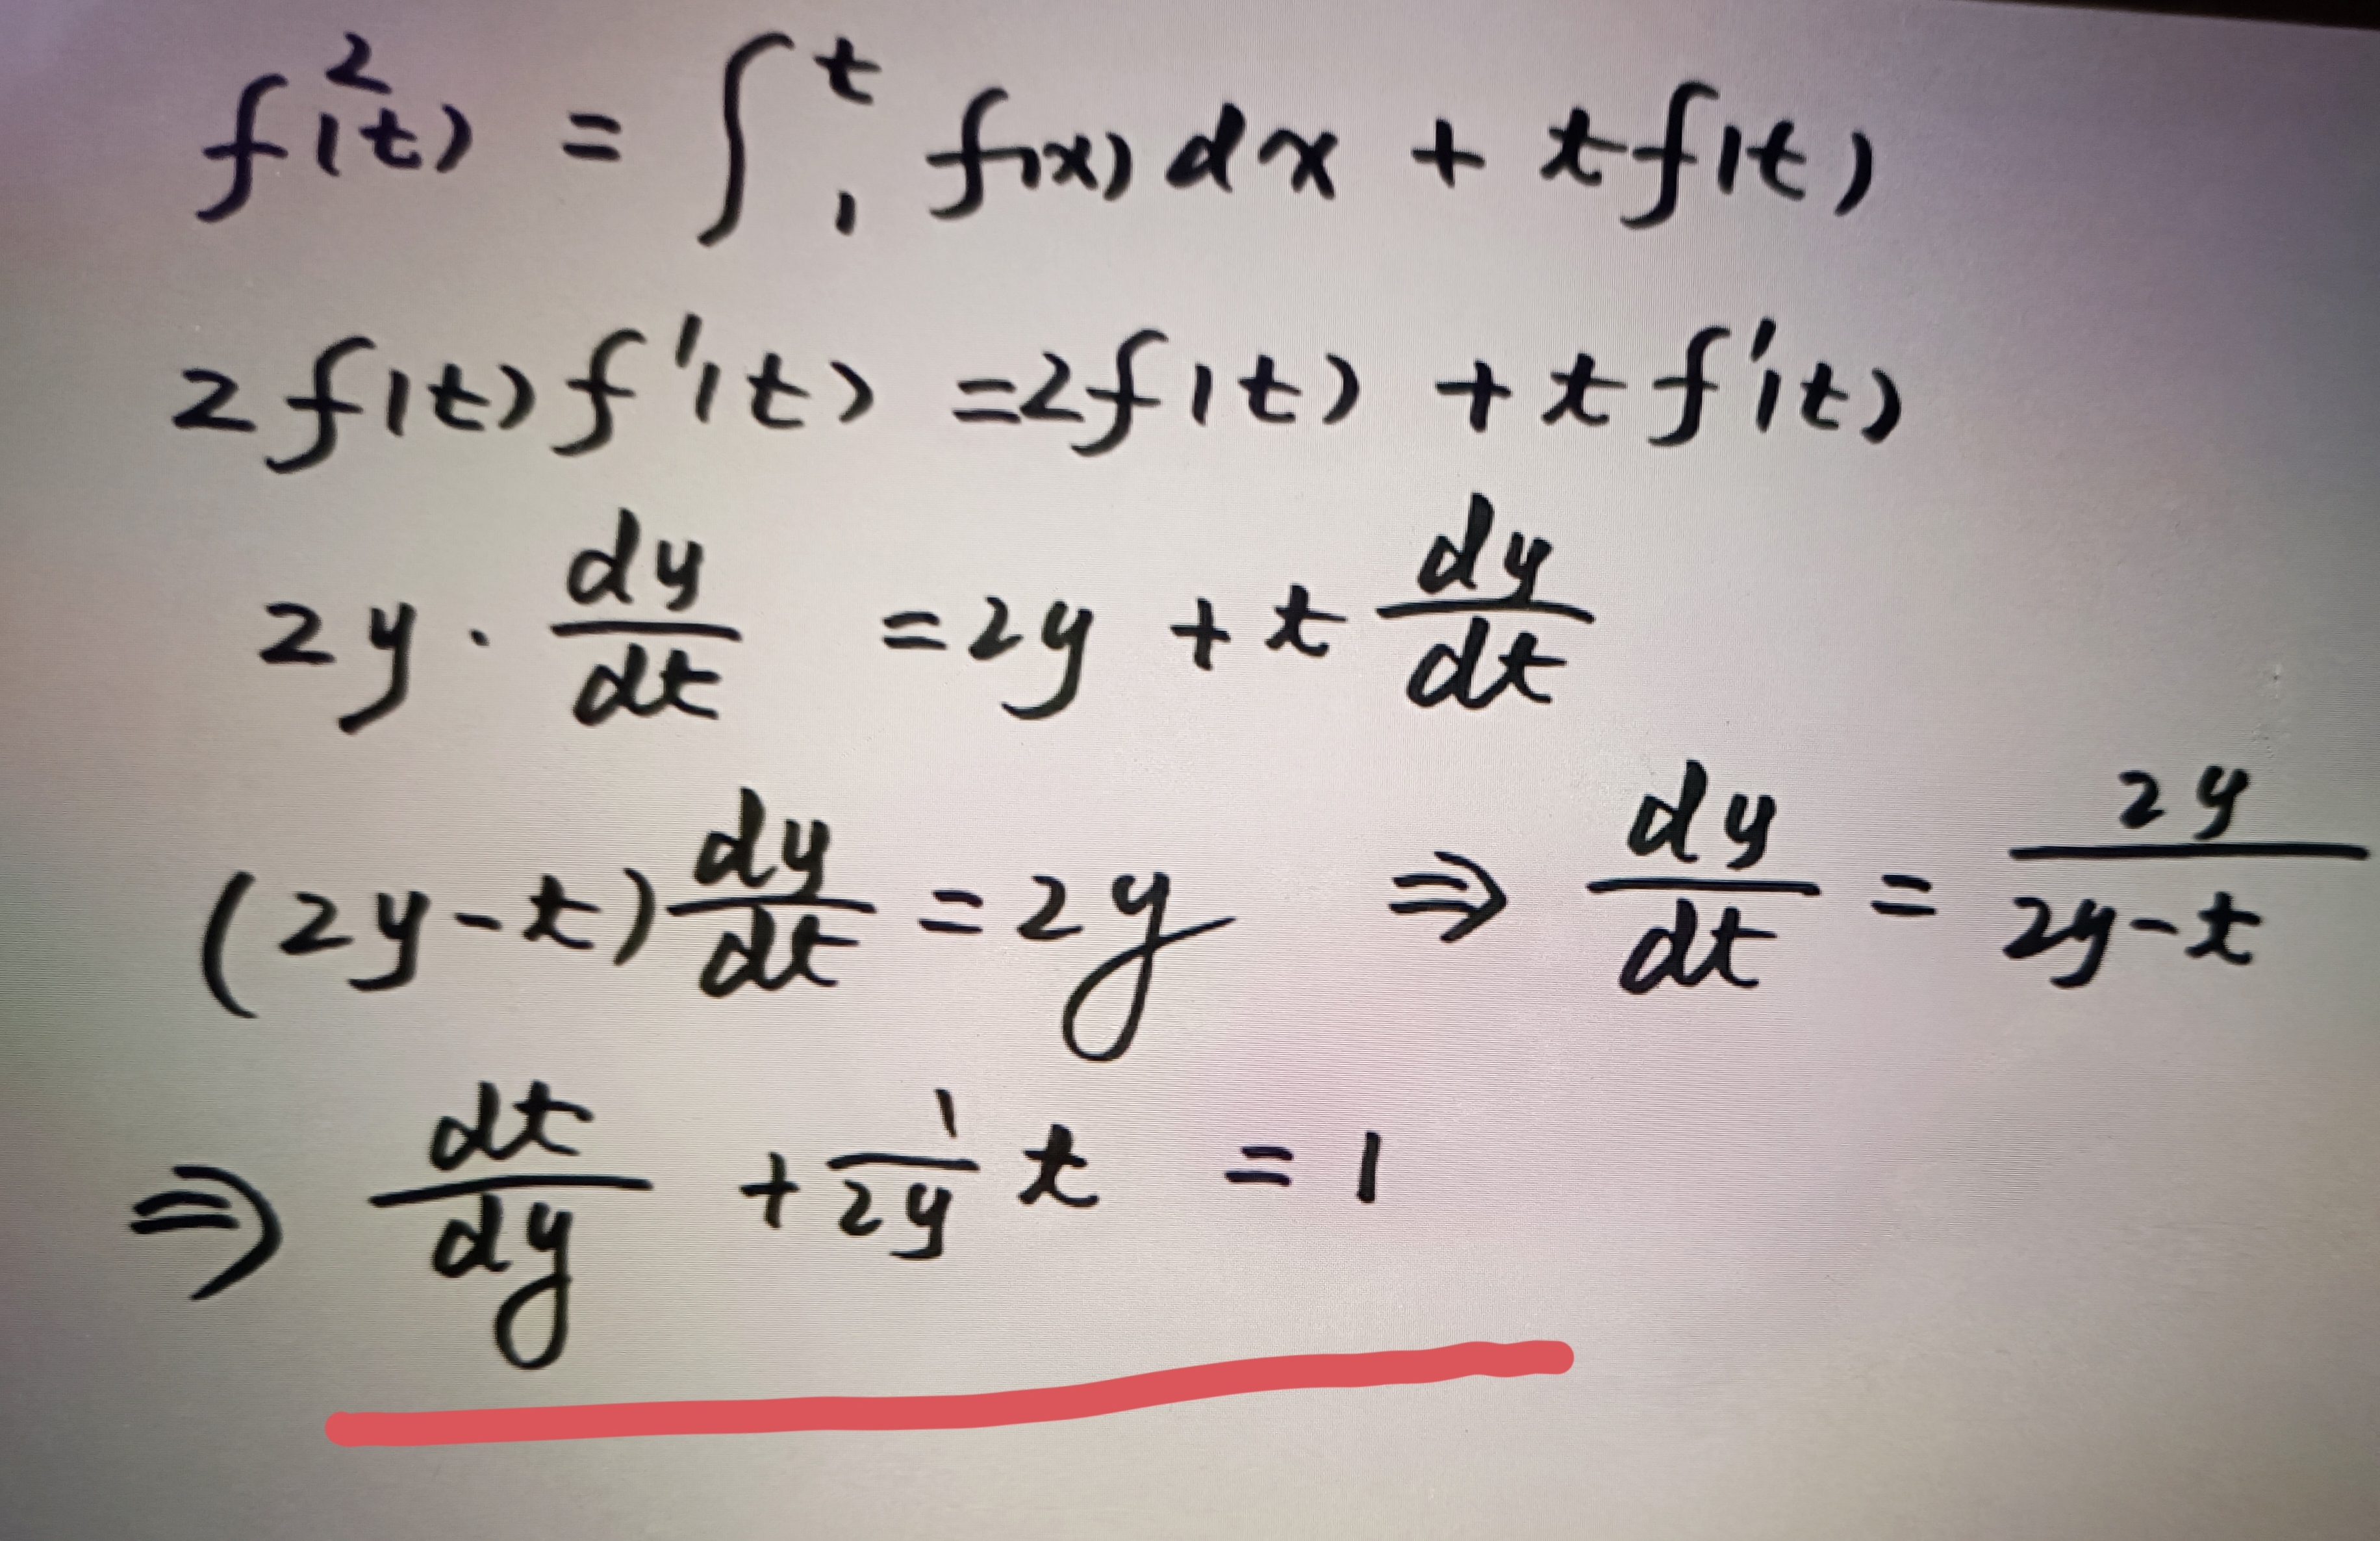 f²(t) = ∫₁ᵗ f(x) dx + t f(t)
2 f(t) f'(t) = 2 f(t) + t f'(t)
2y · dy/dt = 2y + t dy/dt
(2y - t) dy/dt = 2y ⇒ dy/dt = 2y/(2y - t)
⇒ dt/dy + 1/(2y) t = 1